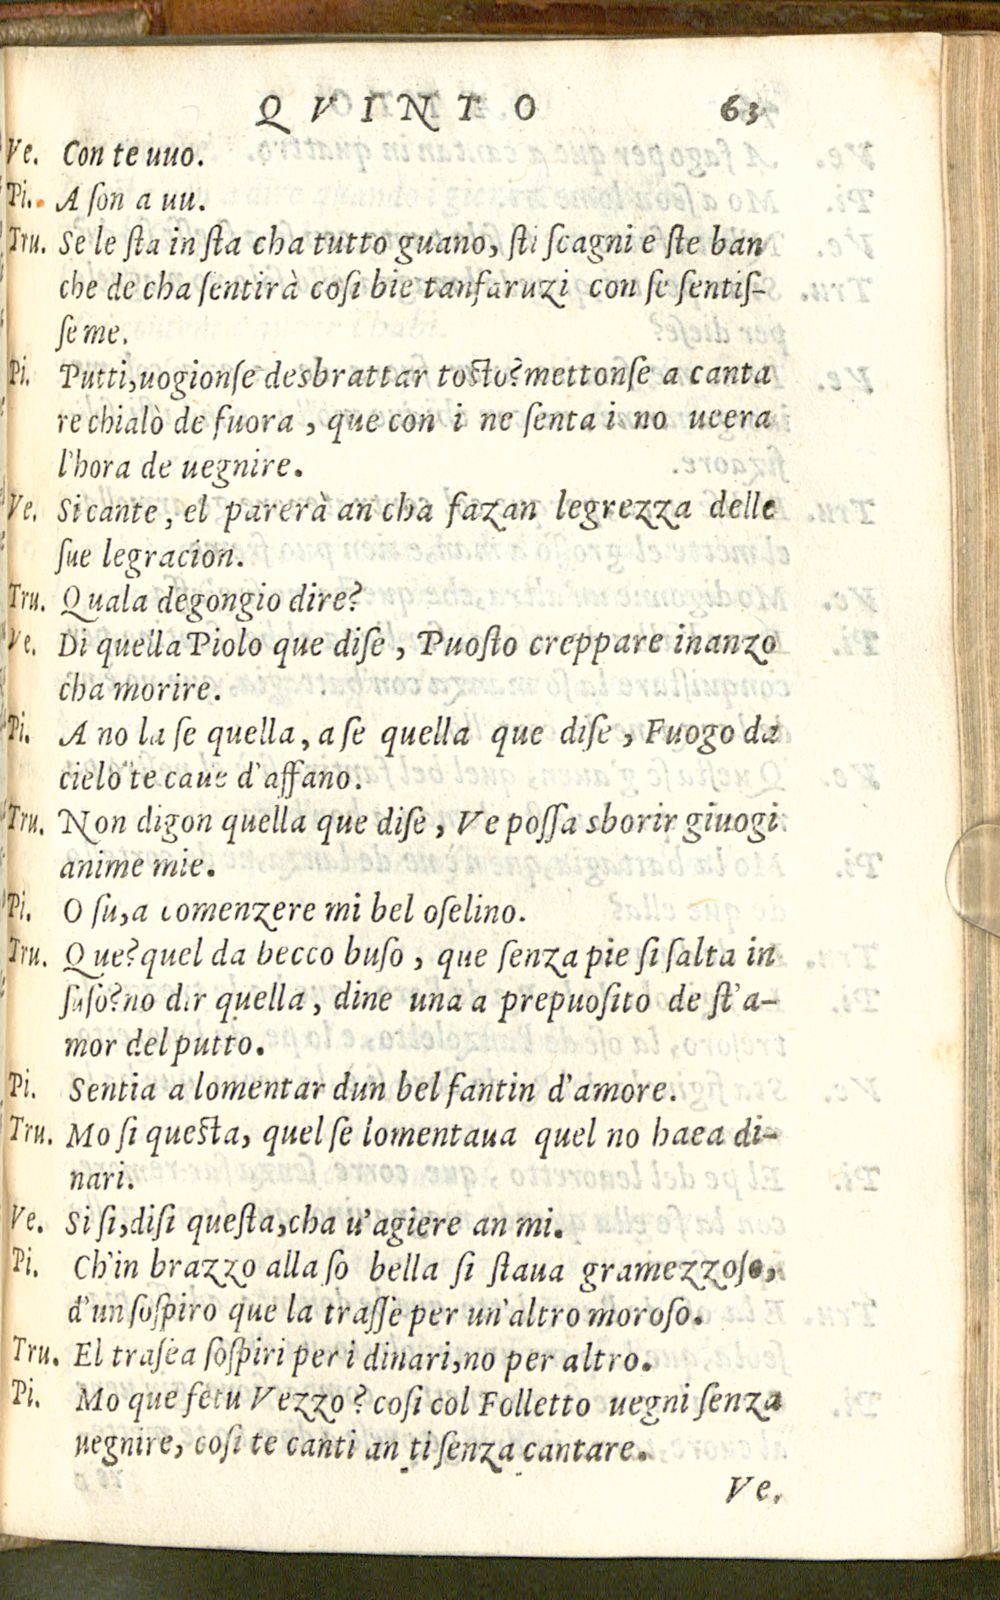 QVINTO 63
Ve. Con te uuo.
Pi. A son a uu.
Tru. Se le sta in sta cha tutto guano, sti scagni e ste ban
che de cha sentirà cosi bie tanfaruzi con se sentis-
se me.
Pi. Putti, uogionse desbrattar tosto? mettonse a canta
re chialò de fuora, que con i ne senta i no ucera
l'hora de uegnire.
Ve. Si cante, el parerà an cha fazan legrezza delle
sue legracion.
Tru. Quala degongio dire?
Ve. Di quella Piolo que dise, Puosto creppare inanzo
cha morire.
Pi. A no la se quella, a se quella que dise, Fuogo da
cielo te caue d'affano.
Tru. Non digon quella que dise, Ve possa sborir giuogi
anime mie.
Pi. O su, a comenzere mi bel oselino.
Tru. Que? quel da becco buso, que senza pie si salta in
suso? no dir quella, dine una a prepuosito de st'a-
mor del putto.
Pi. Sentia a lomentar dun bel fantin d'amore.
Tru. Mo si questa, quel se lomentaua quel no haea di-
nari.
Ve. Si si, disi questa, cha u'agiere an mi.
Pi. Ch'in brazzo alla so bella si staua gramezzoso,
d'un sospiro que la trassè per un'altro moroso.
Tru. El trasèa sospiri per i dinari, no per altro.
Pi. Mo que fetu Vezzo? cosi col Folletto uegni senza
uegnire, cosi te canti an ti senza cantare.
Ve.